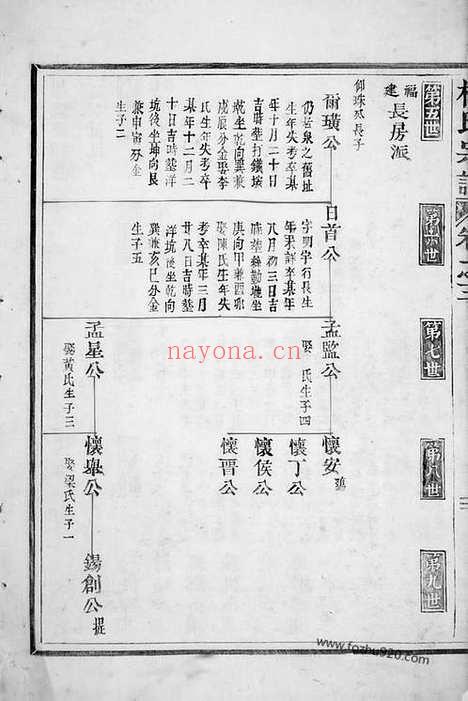 第五世
第六世
第七世
第八世
第九世
福建
長房派
仰珠公長子
爾璜公
仍居泉之舊址
生年失考卒某
年十月二十日
吉時塟打鐵坡
戌山坐乾向巽兼
戌辰分金娶李
氏生年失考卒
某年十二月二
十日吉時塟洋
坑後坐坤向艮
兼申寅分金
生子二
日首公
字明宇行長生
年未詳卒某年
八月初三日吉
時塟雞勤地坐
庚向甲兼酉卯
娶陳氏生年失
考卒某年三月
廿八日吉時塟
洋坑後坐乾向
巽兼亥巳分金
生子五
孟監公
娶 氏生子四
懷安
懷丁公
懷侯公
懷晋公
孟星公
娶黃氏生子三
懷畢公
娶梁氏生子一
錫創公
提
nayona.cn
www.fozhu920.com